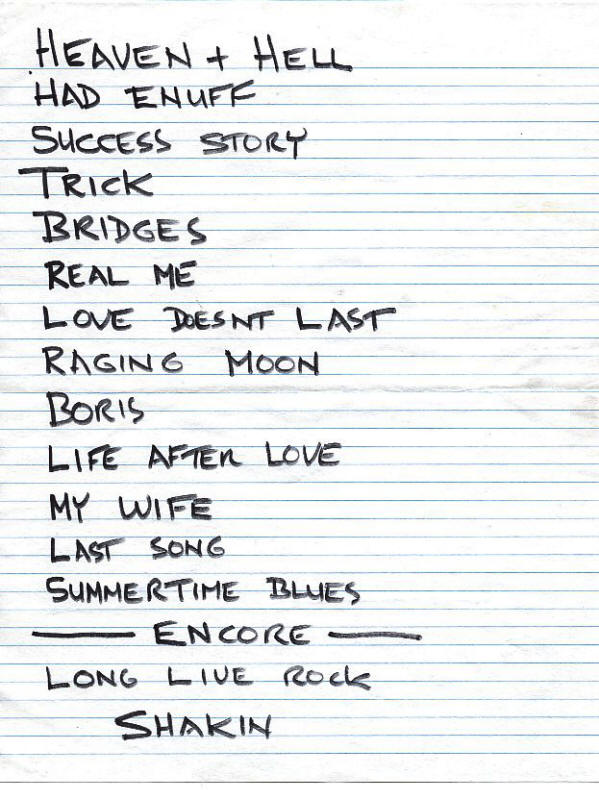 HEAVEN + HELL
HAD ENUFF
SUCCESS STORY
TRICK
BRIDGES
REAL ME
LOVE DOESNT LAST
RAGING MOON
BORIS
LIFE AFTER LOVE
MY WIFE
LAST SONG
SUMMERTIME BLUES
— ENCORE —
LONG LIVE ROCK
SHAKIN